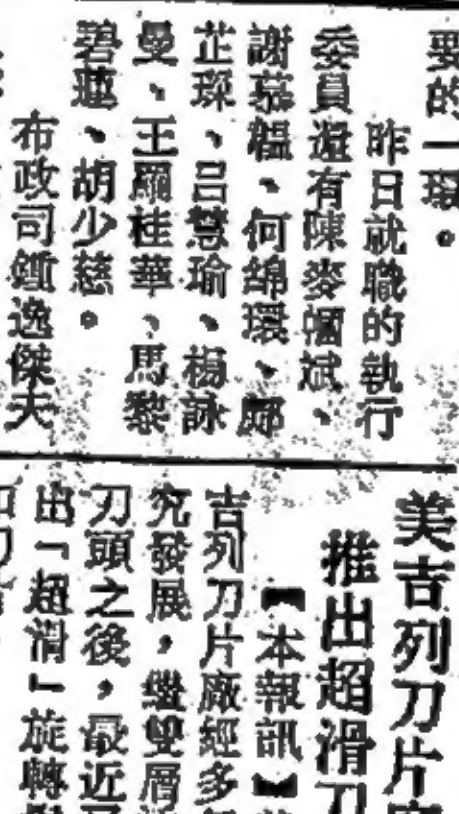 要的一環。
昨日就職的執行
委員還有陳麥幗斌、
謝慕韞、何綿環、鄺
芷琛、呂慧瑜、楊詠
曼、王羅桂華、馬黎
碧蓮、胡少慈。
布政司鍾逸傑夫
美吉列刀片
推出超滑刀
【本報訊】
吉列刀片廠經多
究發展,繼雙層
刀頭之後,最近
出「超滑」旋轉